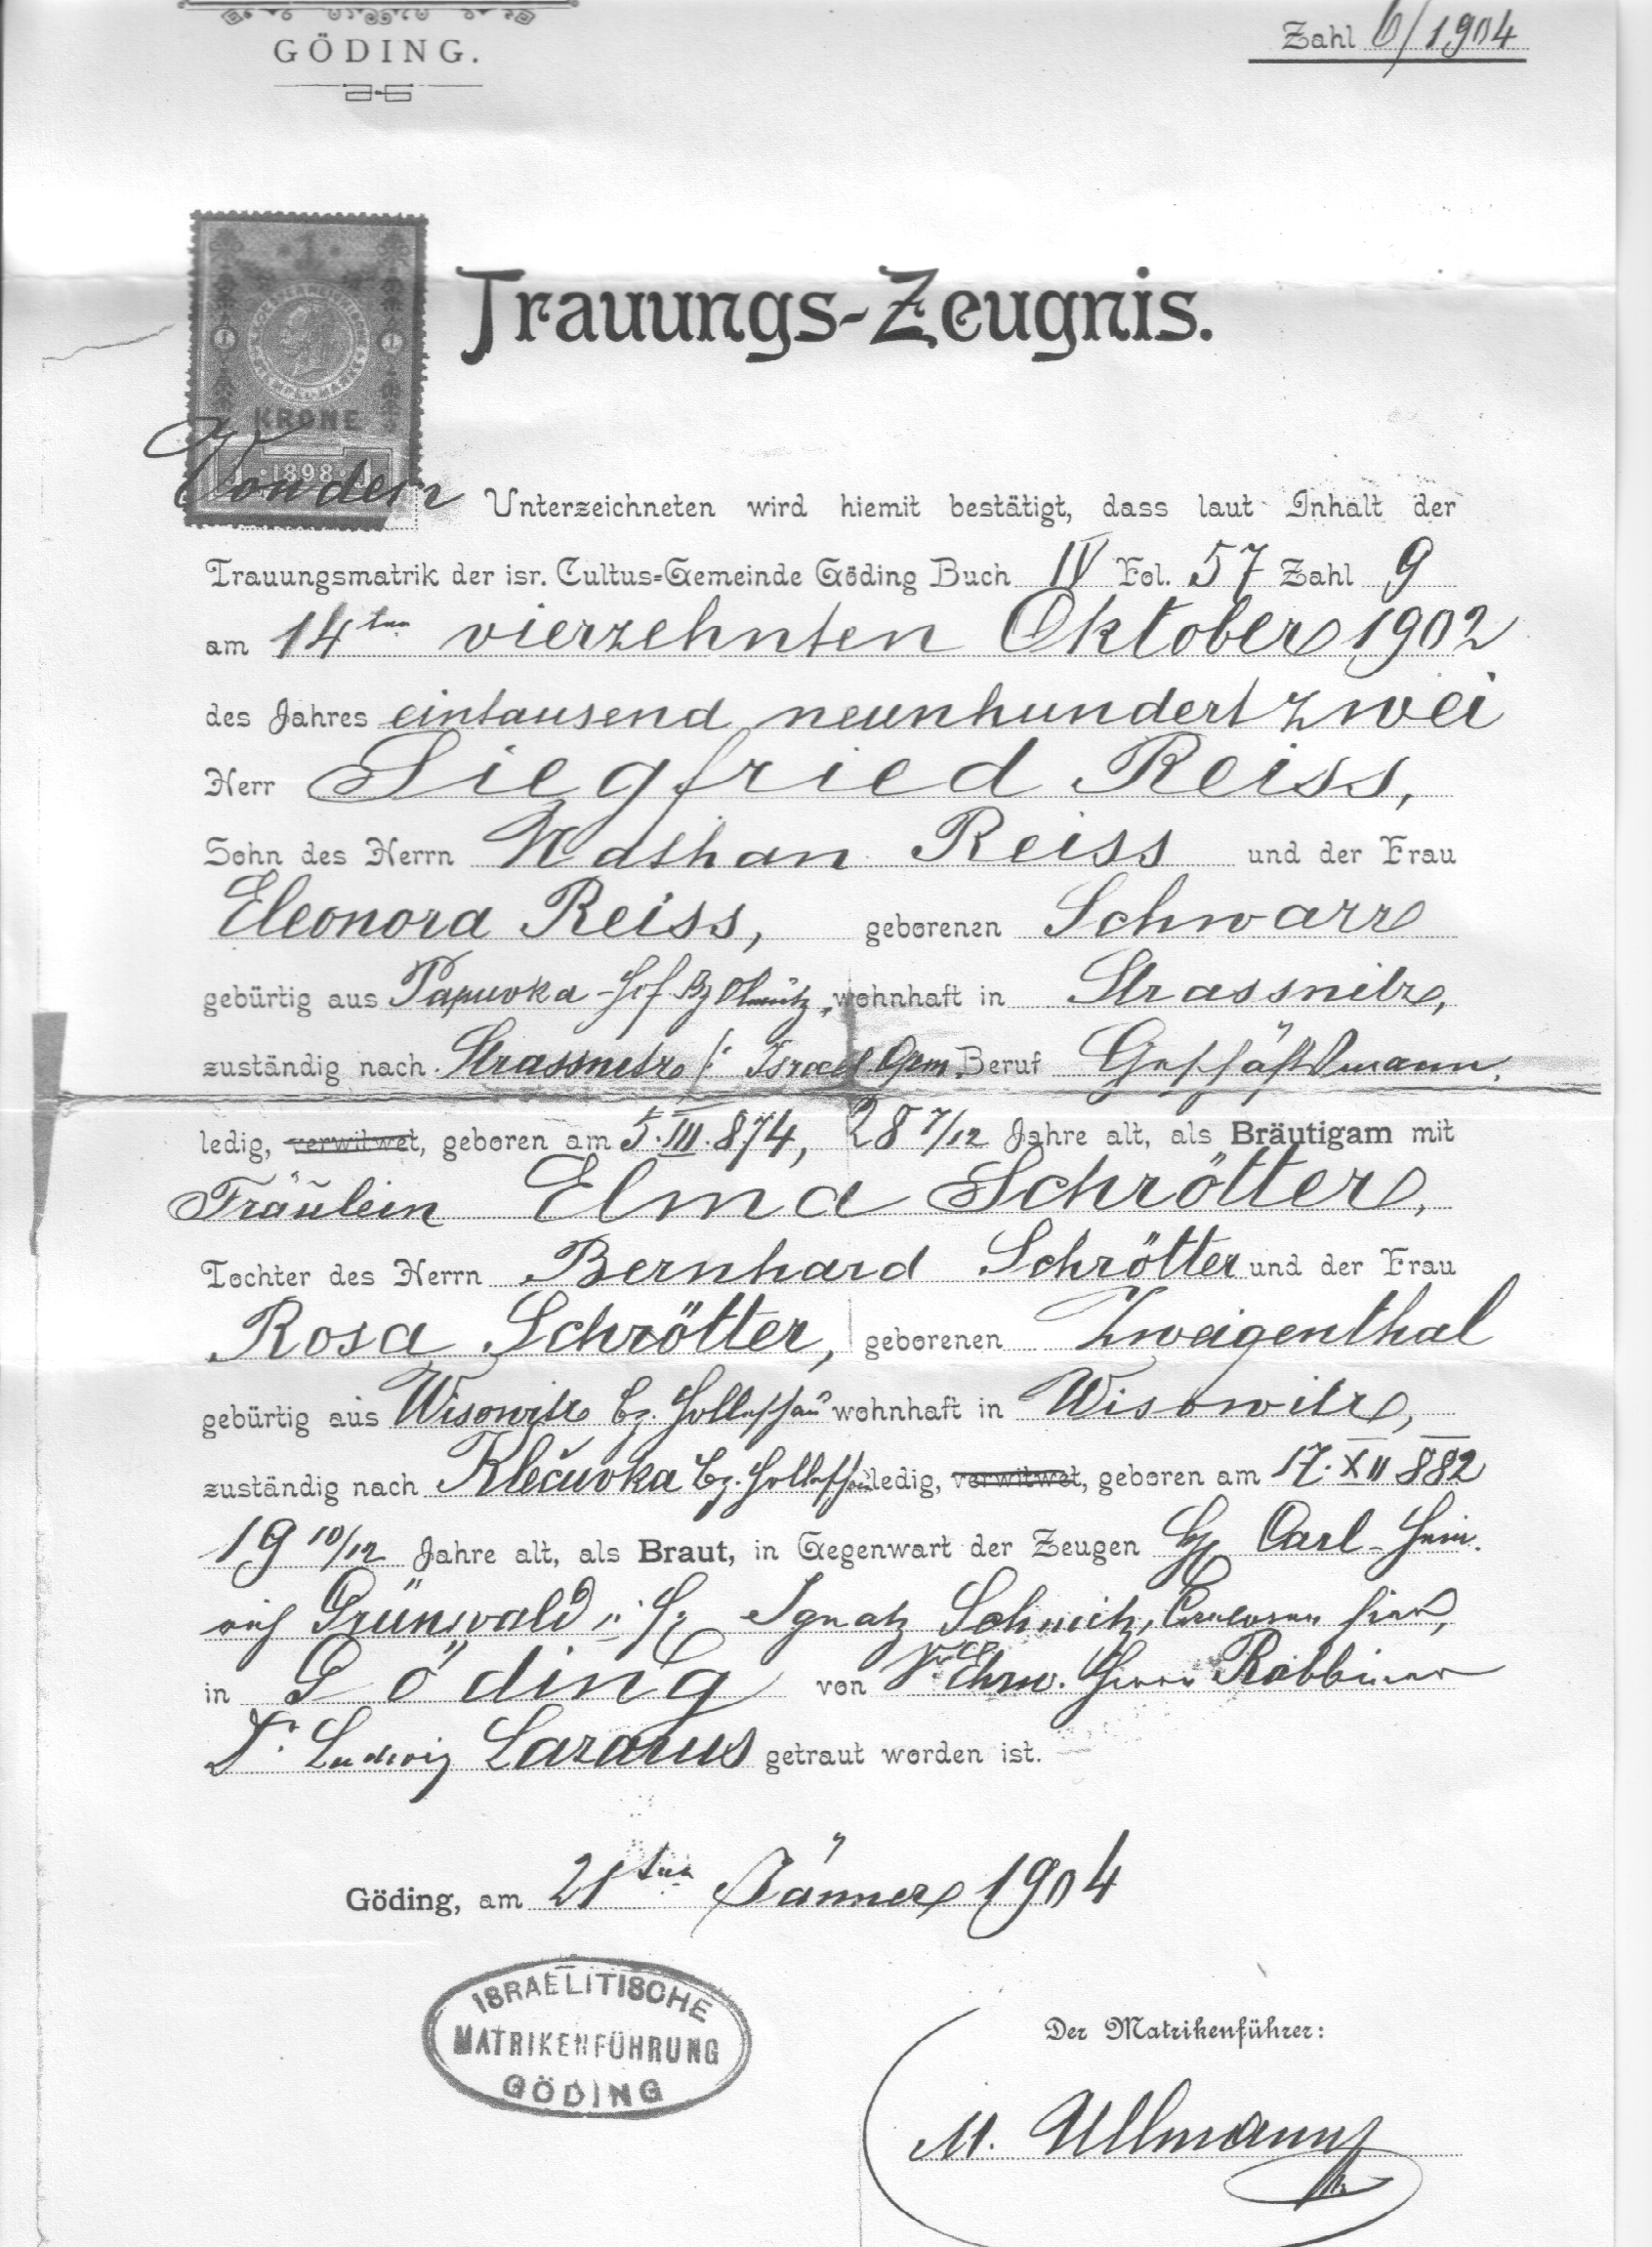 GÖDING.
Zahl 6/1904
1
KRONE
1898
Trauungs-Zeugnis.
Von dem Unterzeichneten wird hiemit bestätigt, dass laut Inhalt der
Trauungsmatrik der isr. Cultus-Gemeinde Göding Buch IV Fol. 57 Zahl 9
am 14ten vierzehnten Oktober 1902
des Jahres eintausend neunhundert zwei
Herr Siegfried Reiss,
Sohn des Herrn Nathan Reiss und der Frau
Eleonora Reiss, geborenen Schwarz
gebürtig aus Papuvka-Hof Bz Olmütz, wohnhaft in Strassnitz,
zuständig nach Strassnitz /: Israel Gem. Beruf Geschäftsmann,
ledig, verwitwet, geboren am 5. III. 874, 28 7/12 Jahre alt, als Bräutigam mit
Fräulein Elma Schrötter,
Tochter des Herrn Bernhard Schrötter und der Frau
Rosa Schrötter, geborenen Zweigenthal
gebürtig aus Wisowitz Bz. Holleschau wohnhaft in Wisowitz,
zuständig nach Klečuvka Bz. Holleschau ledig, verwitwet, geboren am 17. XII 882
19 10/12 Jahre alt, als Braut, in Gegenwart der Zeugen HH Carl Hein-
rich Grünwald u. H. Ignatz hier,
in Göding von Sr Ehrw. Herrn Rabbiner
Dr. Ludwig Lazarus getraut worden ist.
Göding, am 21ten Jänner 1904
ISRAELITISCHE
MATRIKENFÜHRUNG
GÖDING
Der Matrikenführer:
M. Ullmann